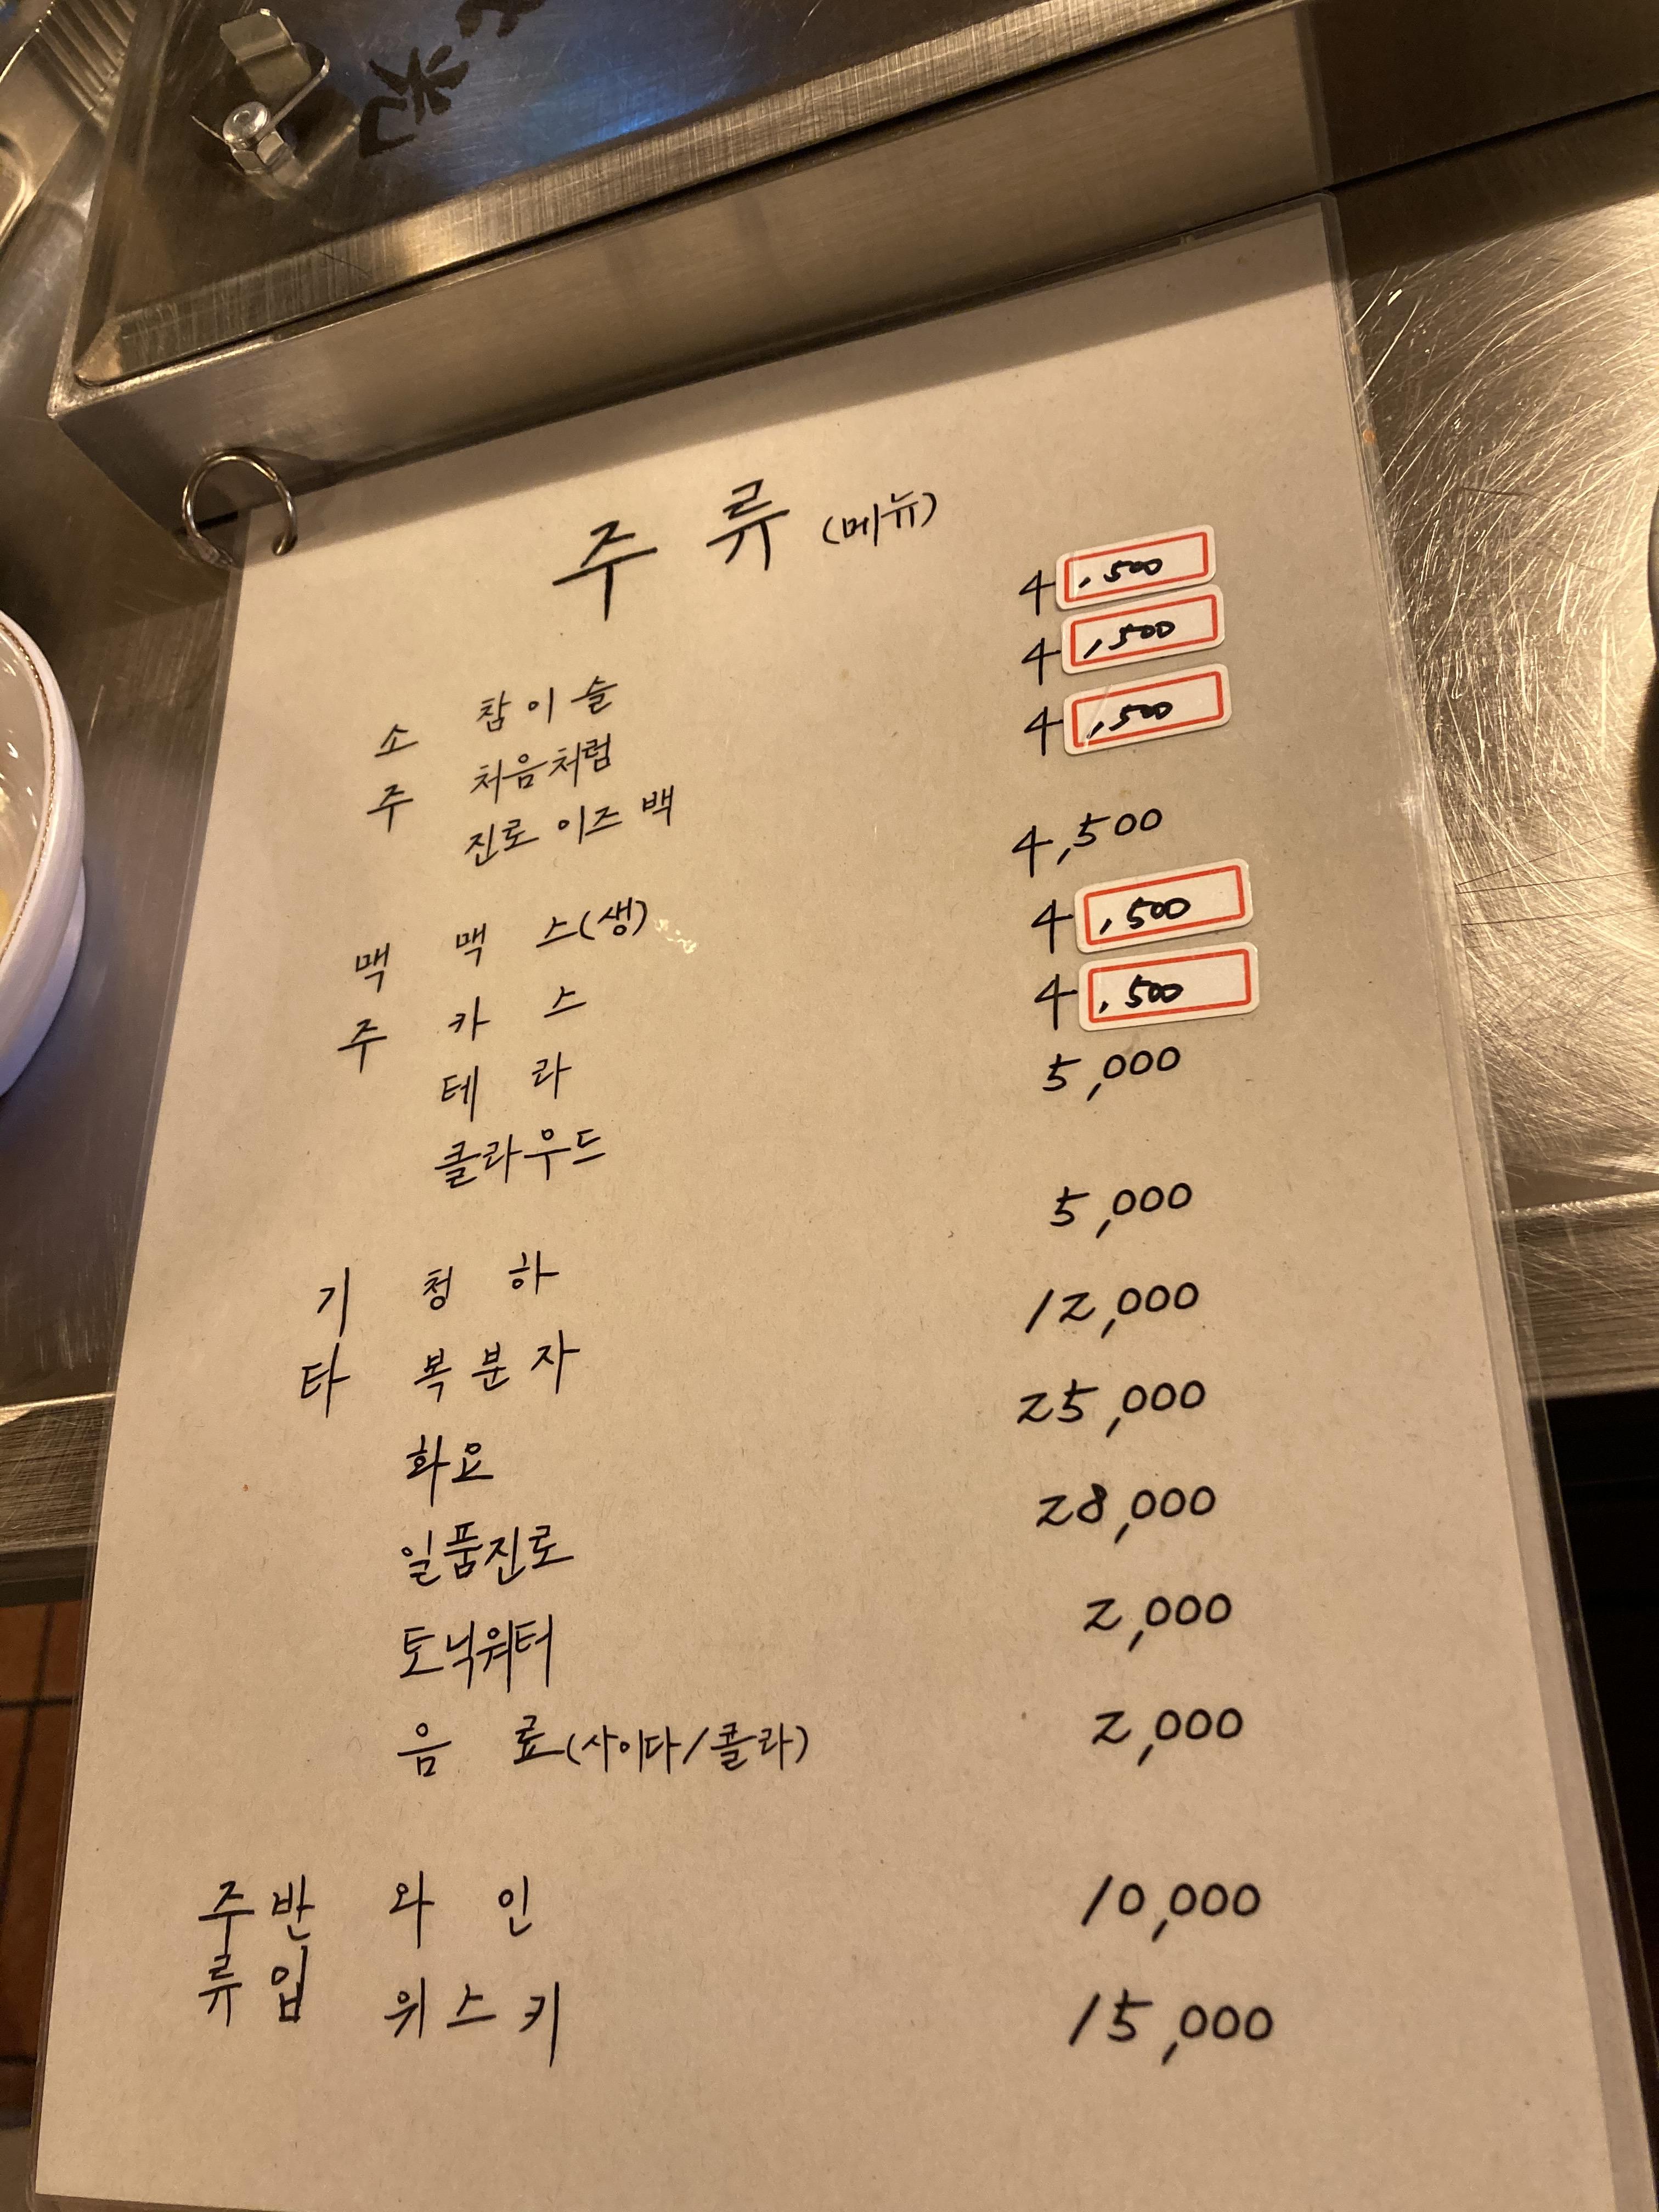 주류 (메뉴)
소주 참이슬 4,500
처음처럼 4,500
진로이즈백 4,500
맥주 맥스(생) 4,500
카스 4,500
테라 4,500
클라우드 5,000
기타 청하 5,000
복분자 12,000
화요 25,000
일품진로 28,000
토닉워터 2,000
음료(사이다/콜라) 2,000
주류반입 와인 10,000
위스키 15,000